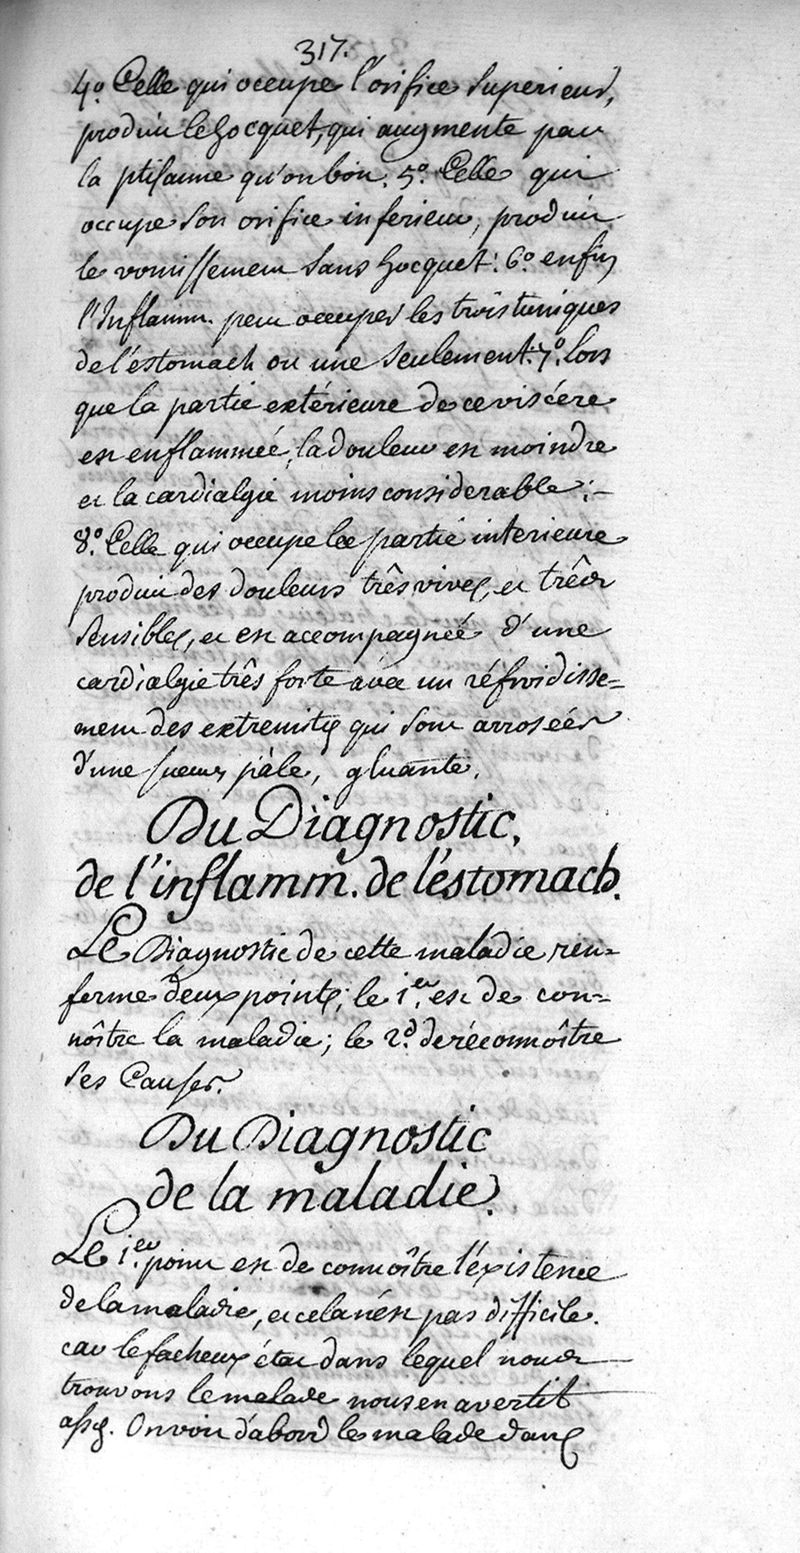 317.
4.º Celle qui occupe l'orifice superieur,
produit le hocquet, qui augmente par
la ptisanne qu'on boit. 5.º Celle qui
occupe son orifice inferieur, produit
le vomissement sans hocquet: 6.º enfin
l'Inflamm. peut occuper les trois tuniques
de l'éstomach ou une seulement: 7.º lors
que la partie extérieure de ce viscére
est enflammée, la douleur est moindre
et la cardialgie moins considerable; –
8.º Celle qui occupe la partie interieure
produit des douleurs três vives, et três
sensibles, et est accompagnée d'une
cardialgie três forte avec un réfroidisse=
ment des extremités qui sont arrosées
d'une sueur pâle, gluante.
Du Diagnostic,
de l'inflamm. de l'éstomach.
Le Diagnostic de cette maladie ren=
ferme deux points; le 1.er est de con=
noître la maladie; le 2.d de réconnoître
ses Causes.
Du Diagnostic
de la maladie.
Le 1.er point est de connoître l'éxistence
de la maladie, et cela n'ést pas difficile.
car le facheux état dans lequel nous
trouvons le malade nous en avertit
assés. On voit d'abord le malade dans